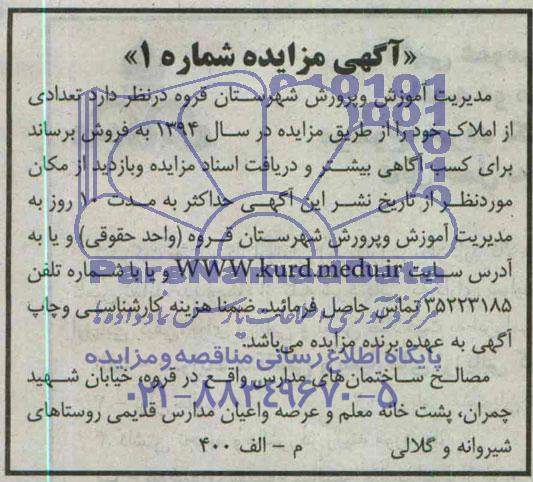 «آگهی مزایده شماره ۱»
مدیریت آموزش وپرورش شهرستان قروه درنظر دارد تعدادی
از املاک خود را از طریق مزایده در سال ۱۳۹۴ به فروش برساند
برای کسب آگاهی بیشتر و دریافت اسناد مزایده وبازدید از مکان
موردنظر از تاریخ نشر این آگهی حداکثر به مدت ۱۰ روز به
مدیریت آموزش وپرورش شهرستان قروه (واحد حقوقی) و یا به
آدرس سایت WWW.kurd.medu.ir و یا با شماره تلفن
۳۵۲۲۳۱۸۵ تماس حاصل فرمائید. ضمنا هزینه کارشناسی وچاپ
آگهی به عهده برنده مزایده می‌باشد.
پایگاه اطلاع رسانی مناقصه و مزایده
مصالح ساختمان‌های مدارس واقع در قروه، خیابان شهید
۰۲۱-۸۸۳۴۹۶۷۰-۵
چمران، پشت خانه معلم و عرصه واعیان مدارس قدیمی روستاهای
شیروانه و گلالی م – الف ۴۰۰